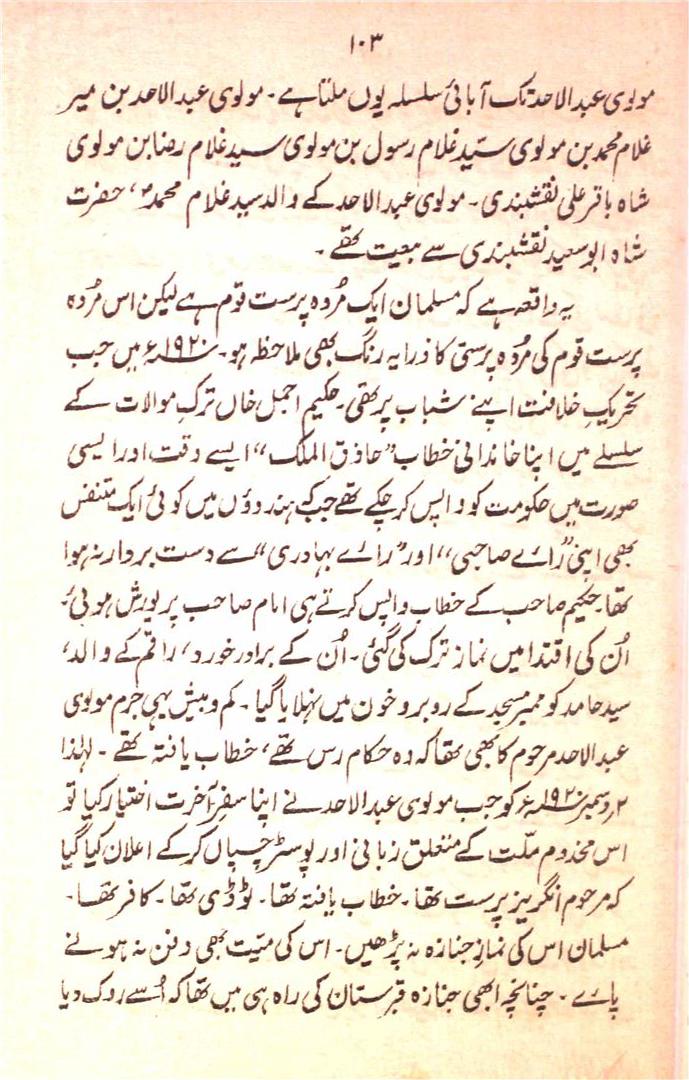 ۱۰۳
مولوی عبدالاحد تک آبائی سلسلہ یوں ملتا ہے۔ مولوی عبدالاحد بن میر
غلام محمد بن مولوی سیّد غلام رسول بن مولوی سید غلام رضا بن مولوی
شاہ باقر علی نقشبندی۔ مولوی عبدالاحد کے والد سید غلام محمدؐ، حضرت
شاہ ابوسعید نقشبندی سے بیعت تھے۔
یہ واقعہ ہے کہ مسلمان ایک مُردہ پرست قوم ہے لیکن اس مُردہ
پرست قوم کی مُردہ پرستی کا ذرا یہ رنگ بھی ملاحظہ ہو۔ ۱۹۲۰ء میں جب
تحریکِ خلافت اپنے شباب پر تھی۔ حکیم اجمل خاں ترکِ موالات کے
سلسلے میں اپنا خاندانی خطاب ”حاذق الملک“ ایسے وقت اور ایسی
صورت میں حکومت کو واپس کر چکے تھے جب کہ ہندوؤں میں کوئی ایک متنفس
بھی اپنی ”رائے صاحبی“ اور ”رائے بہادری“ سے دست بردار نہ ہوا
تھا۔ حکیم صاحب کے خطاب واپس کرتے ہی امام صاحب پر یورش ہوئی۔
اُن کی اقتدا میں نماز ترک کی گئی۔ اُن کے برادر خورد، راقم کے والد،
سید حامد کو ممبر مسجد کے روبرو خون میں نہلایا گیا۔ کم و بیش یہی جرم مولوی
عبدالاحد مرحوم کا بھی تھا کہ وہ حکام رس تھے، خطاب یافتہ تھے۔ لہٰذا
۲ دسمبر ۱۹۲۰ء کو جب مولوی عبدالاحد نے اپنا سفرِ آخرت اختیار کیا تو
اس مخدومِ ملّت کے متعلق زبانی اور پوسٹر چسپاں کر کے اعلان کیا گیا
کہ مرحوم انگریز پرست تھا۔ خطاب یافتہ تھا۔ ٹوڈی تھا۔ کافر تھا۔
مسلمان اس کی نمازِ جنازہ نہ پڑھیں۔ اس کی میّت بھی دفن نہ ہونے
پائے۔ چنانچہ ابھی جنازہ قبرستان کی راہ ہی میں تھا کہ اُسے روک دیا